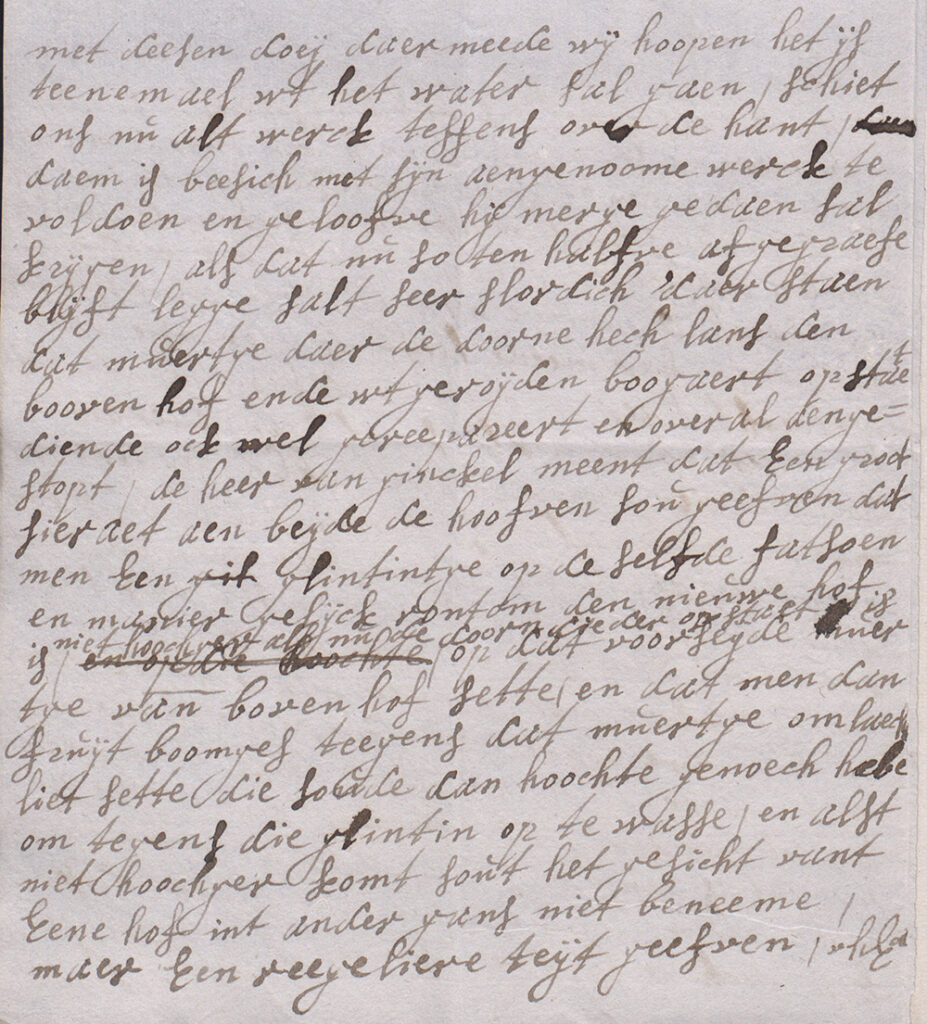 met deesen doeij daer meede wij hoopen het ijs
teenemael wt het water sal gaen, schiet
ons nu alt werck teffens over de hant,
daem is beesich met sijn aengenoome werck te
voldoen en geloofve hij merge gedaen sal
krijgen, als dat nu so ten halfve afgegraefe
blijft legge salt seer slordich daer staen
dat muertge daer de doorne hech lans den
booven hof ende wtgeroijden boogaert op staet
diende ock wel gereepareert en overal aenge=
stopt, de heer van ginckel meent dat Een groot
sieraet aen beijde de hoofven sou geefven dat
men Een glintintge op de selfde fatsoen
en manier gelijck rontom den nieuwe hof
niet hoocher als nu de doorn die der op staet is
is, en op die hoochte, op dat voorseyde muer
tge van boven hof sette, en dat men dan
fruijt boomges teegens dat muertge om laech
liet sette die soude dan hoochte genoech hebe
om tegens die glintin op te wasse, en alst
niet hoochger komt sout het gesicht vant
Eene hof int ander gans niet beneeme,
maer Een reegeliere teijt geefven,